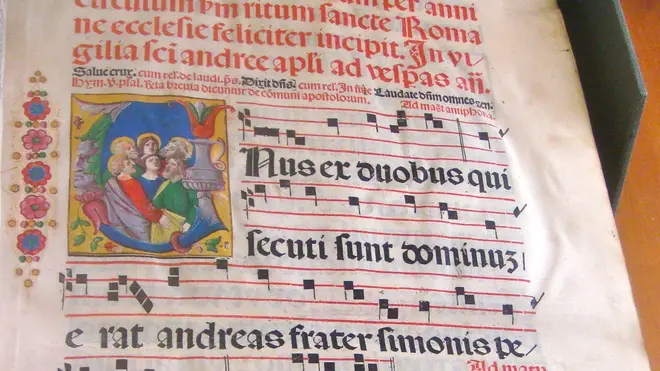 circulum ꝑm ritum sancte Roma
ne ecclesie feliciter incipit. In vi
gilia sci andree apli ad vesꝑas añ.
Salue crux. cum rel. de laudi. ꝑs. Dixit dñs. cum rel. In fine Laudate dñm omnes gen.
Hym. ⁊ psal. ⁊cia breuia dicuntur de comuni apostolorum.
Ad mag̃t antiphona.
Unus ex duobus qui
secuti sunt dominuꝫ
e rat andreas frater simonis pe
Ad matu